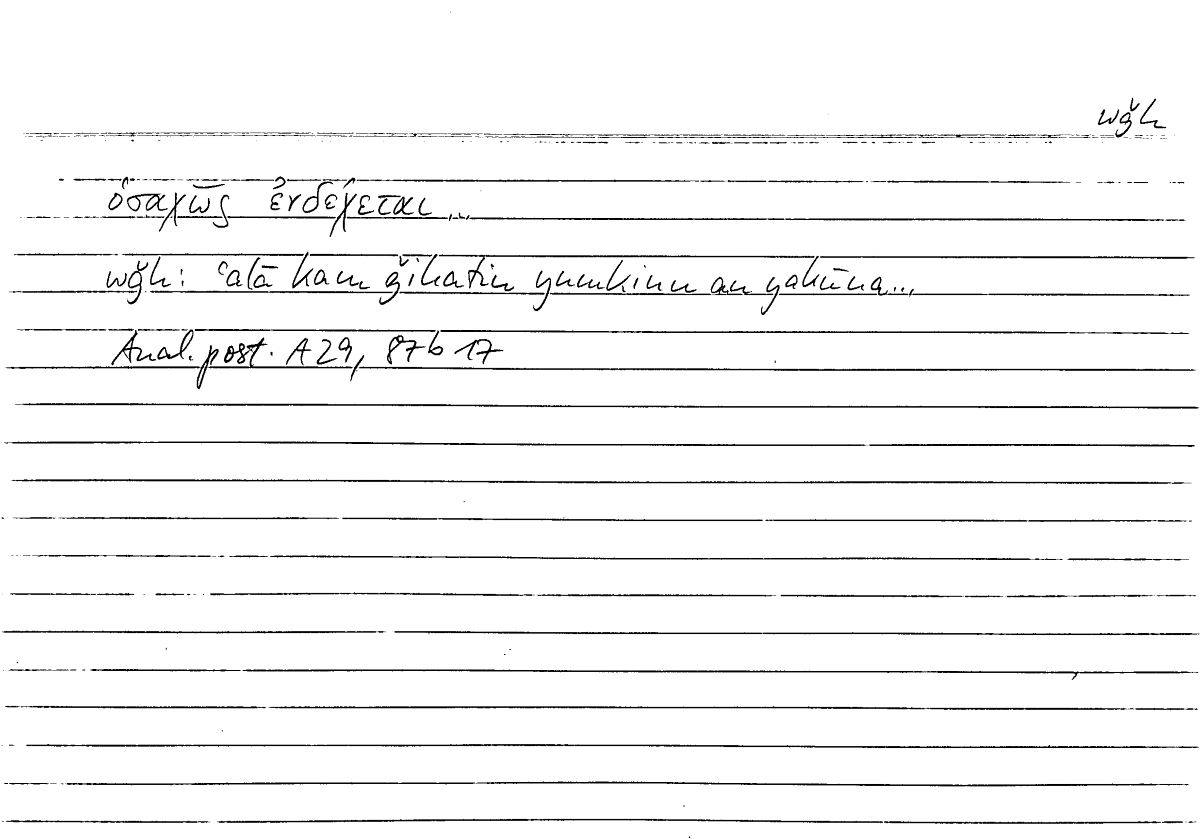 wǧh
ὁσαχῶς ἐνδέχεται...
wǧh: ʿalā kam ǧihatin yumkinu an yakūna...
Anal. post. A 29, 87b 17